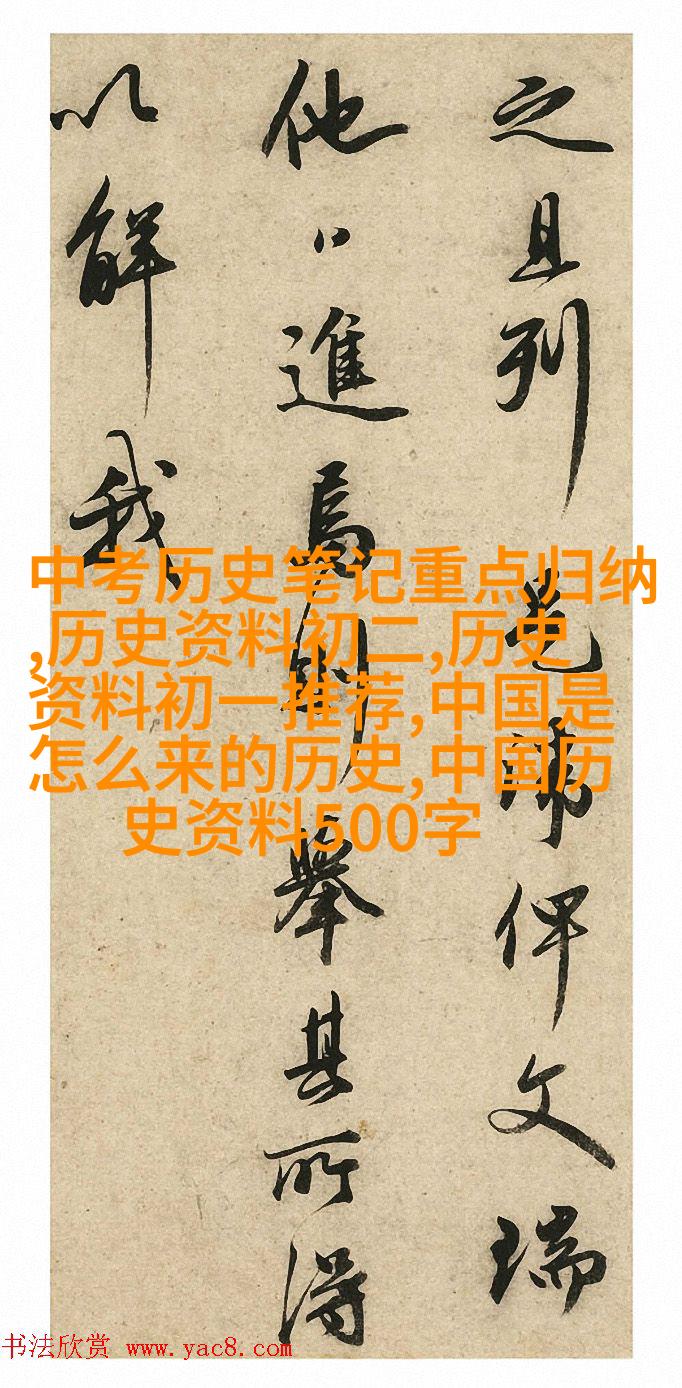 之且列文瑞
他日進焉則舉其所得
以解我
中考历史笔记重点归纳
,历史资料初二,历史
资料初一推荐,中国是
怎么来的历史,中国历
史资料500字
书法欣赏 www.yac8.com